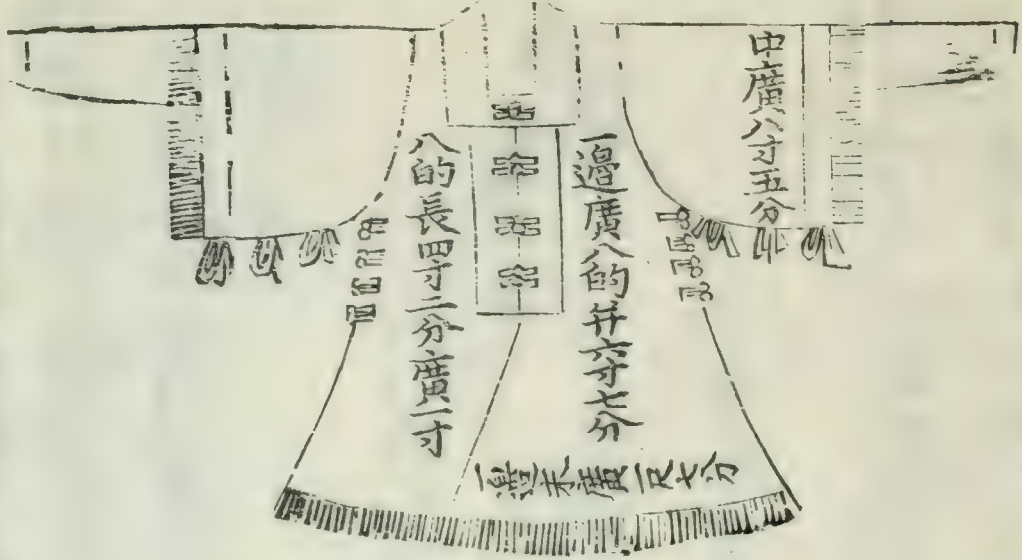 中廣八寸五分
一邉廣八的并六寸七分
八的長四寸二分廣一寸
一邉末廣一尺七分